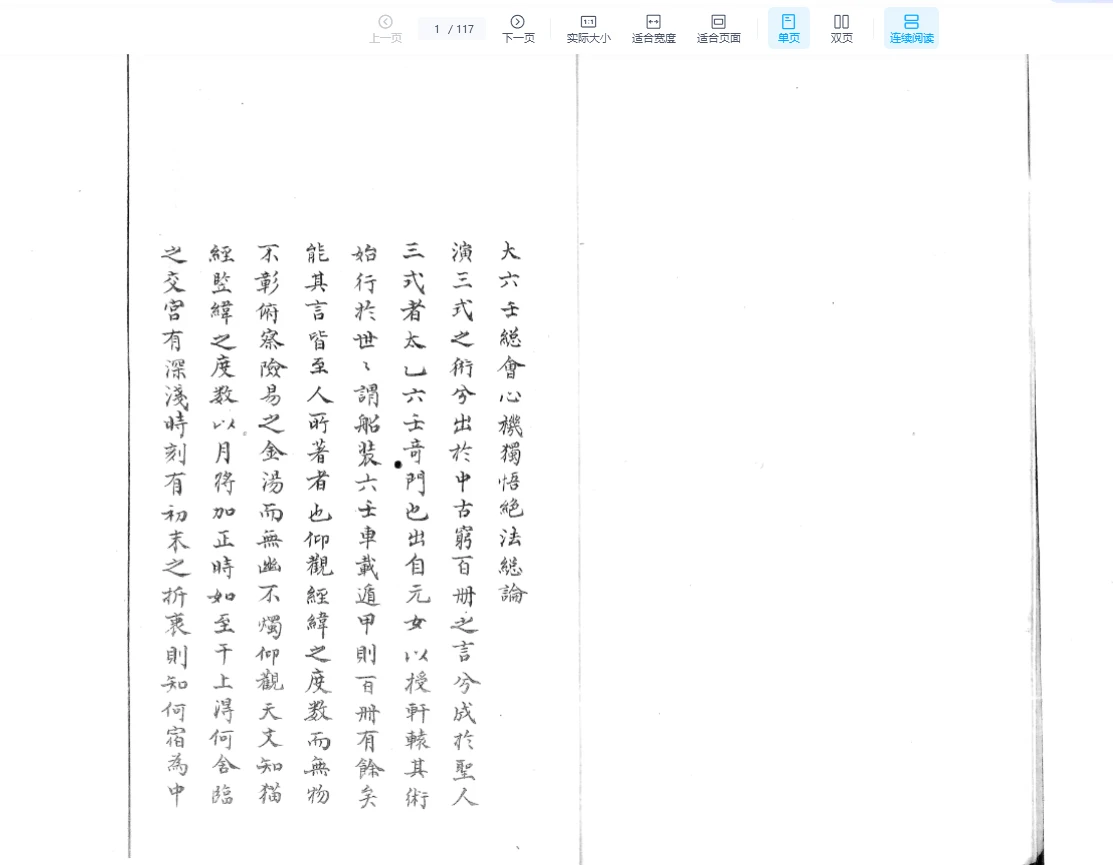 上一页
1 / 117
下一页
1:1
实际大小
适合宽度
适合页面
单页
双页
连续阅读
大六壬總會心機獨悟絕法總論
演三式之術兮出於中古窮百冊之言兮成於聖人
三式者太乙六壬竒門也出自元女以授軒轅其術
始行於世〻謂船裝六壬車載遁甲則百冊有餘矣
能其言皆至人所著者也仰觀經緯之度数而無物
不彰俯察險易之金湯而無幽不燭仰觀天文知猫
經監緯之度数以月将加正時如至干上得何舍臨
之交宮有深淺時刻有初末之折衷則知何宿為中